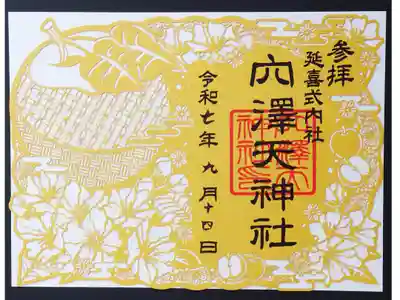 参拝
延喜式内社
穴澤天神社
令和七年 九月十四日